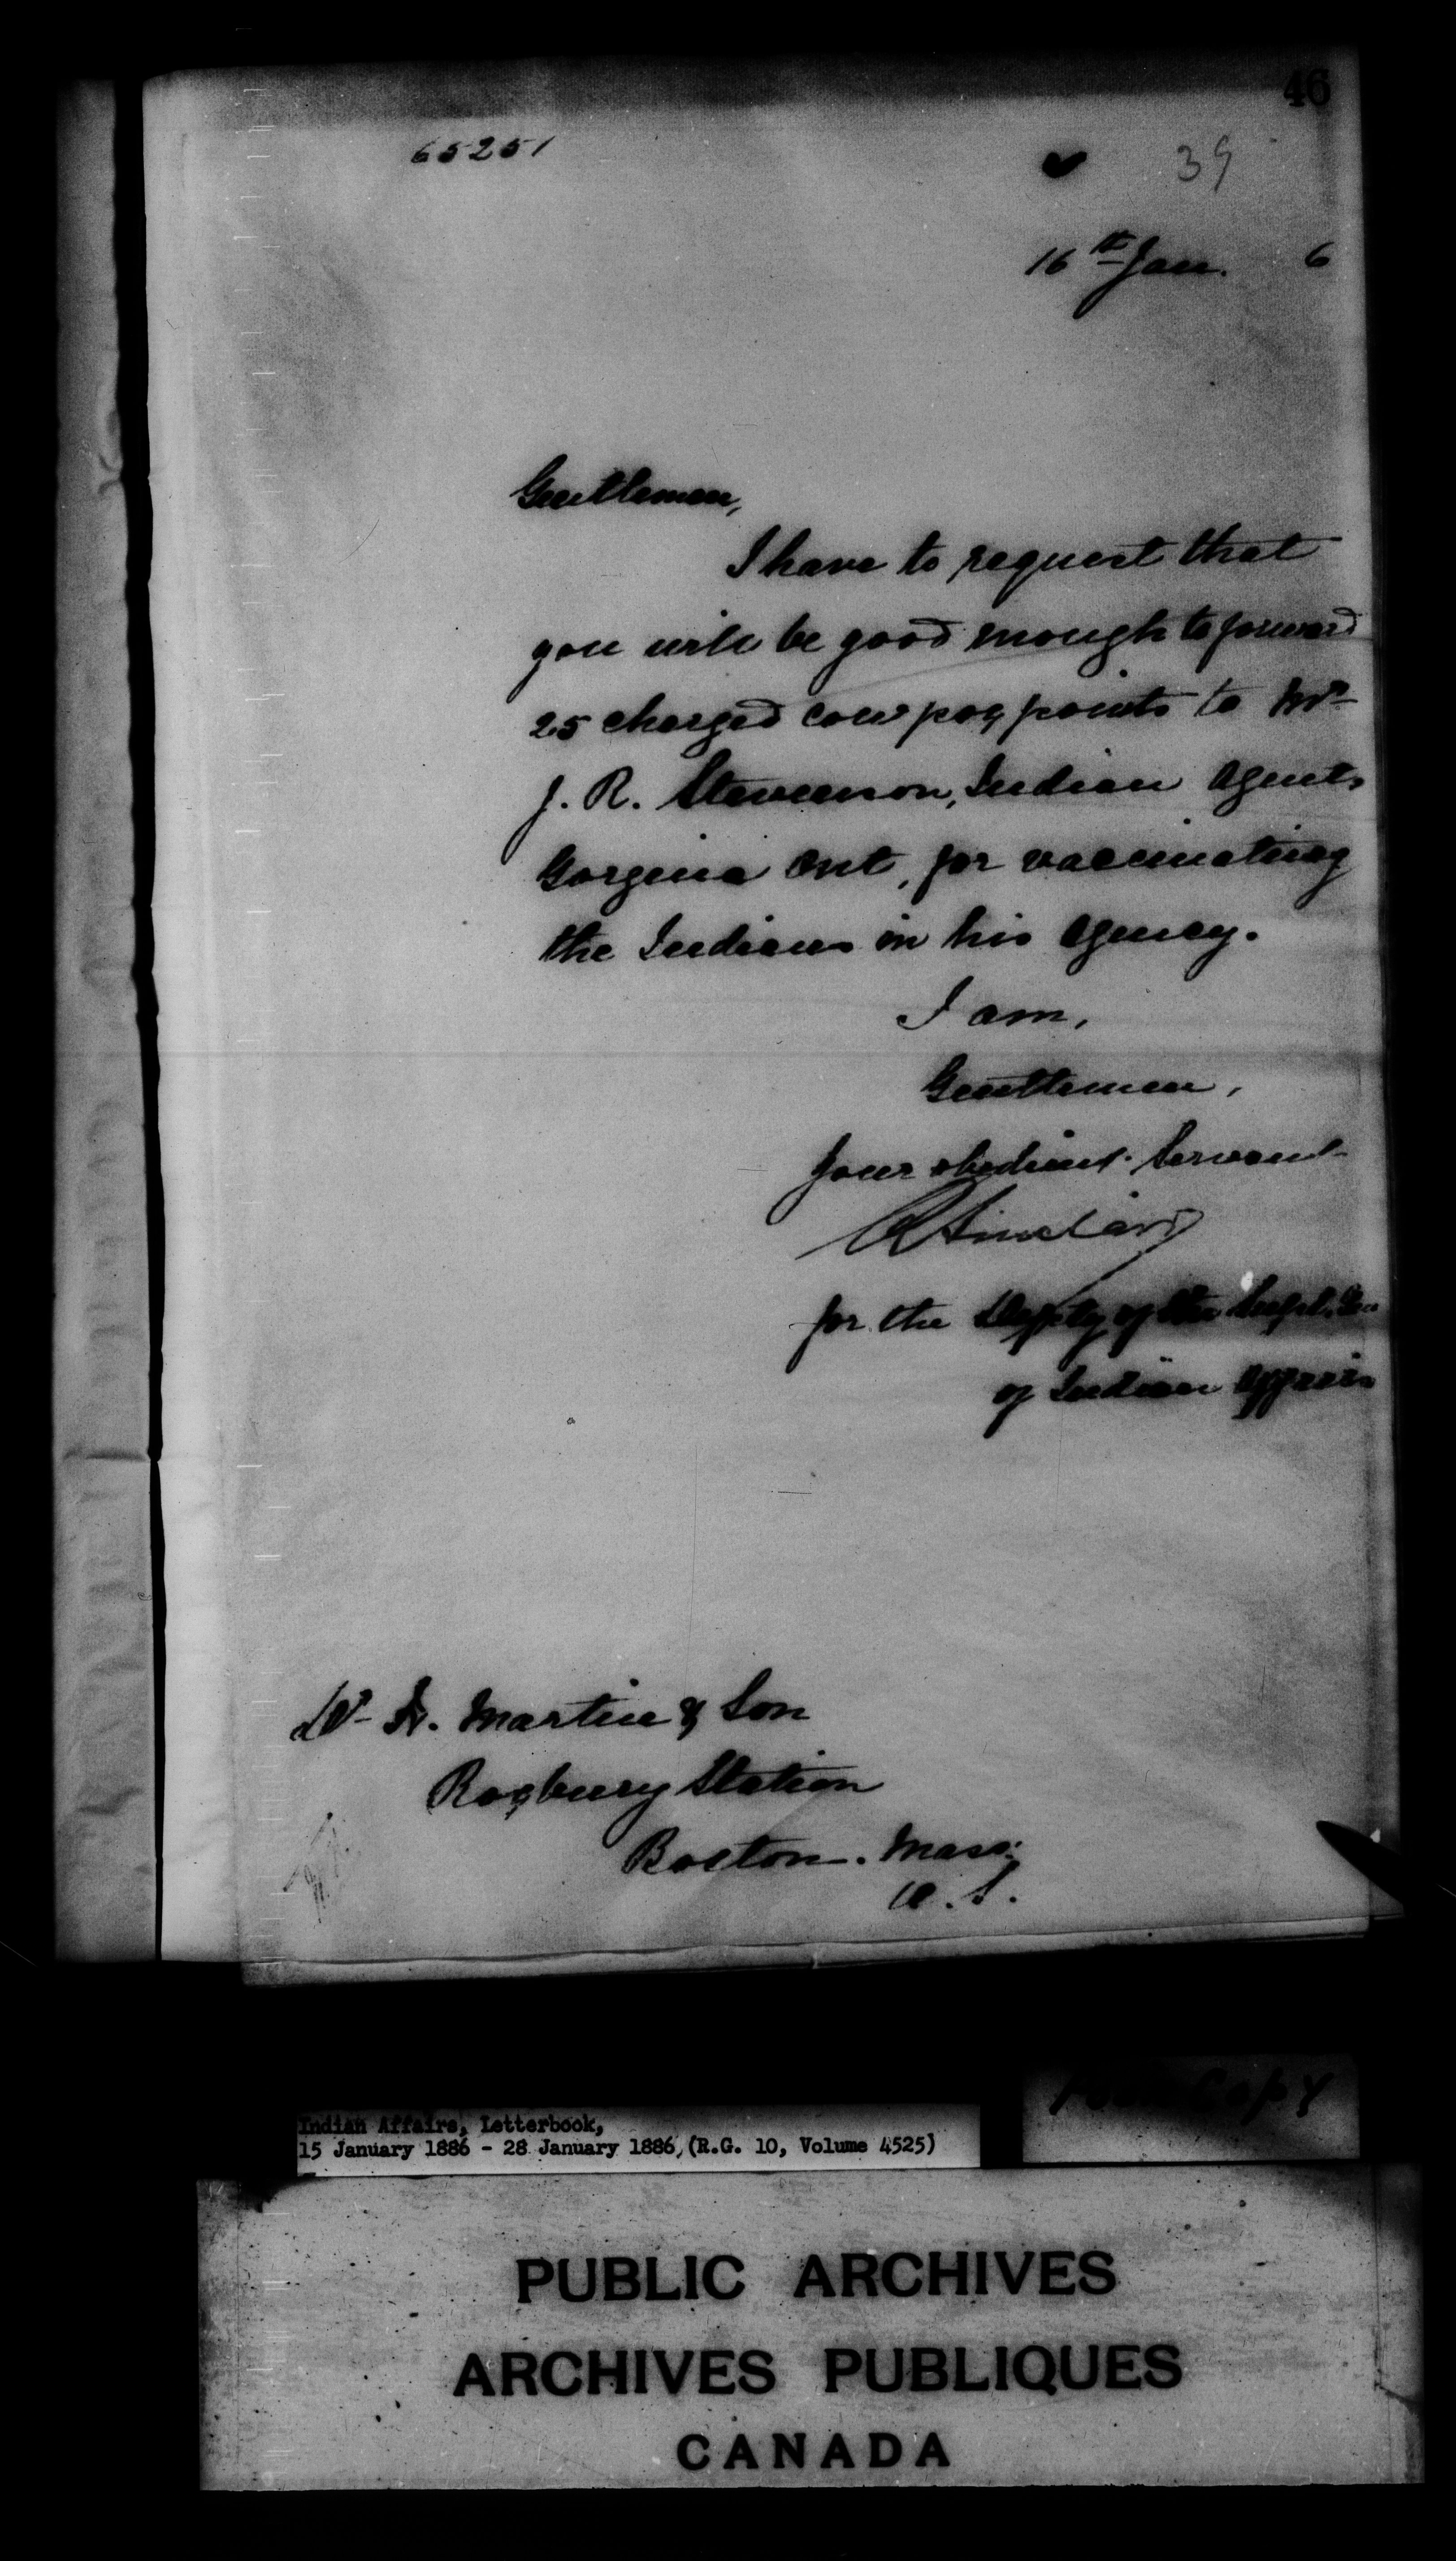 46
65251
39
16th Jan. 6
Gentlemen,
I have to request that
you will be good enough to forward
25 charged cowpox points to Mr
J. R. Stevenson, Indian Agent,
Gorgina Ont, for vaccinating
the Indians in his Agency.
I am,
Gentlemen,
Your obedient Servant
R Sinclair
for the Deputy of the Supt. Gen
of Indian Affairs
Dr H. Martin & Son
Roxbury Station
Boston. Mass.
U. S.
Poor Copy
Indian Affairs, Letterbook,
15 January 1886 - 28 January 1886, (R.G. 10, Volume 4525)
PUBLIC ARCHIVES
ARCHIVES PUBLIQUES
CANADA